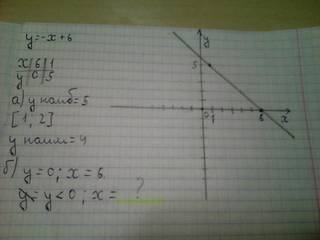 y=-x+6
x|6|1
y|0|5
а) y наиб=5
[1; 2]
y наим=4
б) y=0; x=6
y= y<0; x= ?
y
5
0 1 6 x